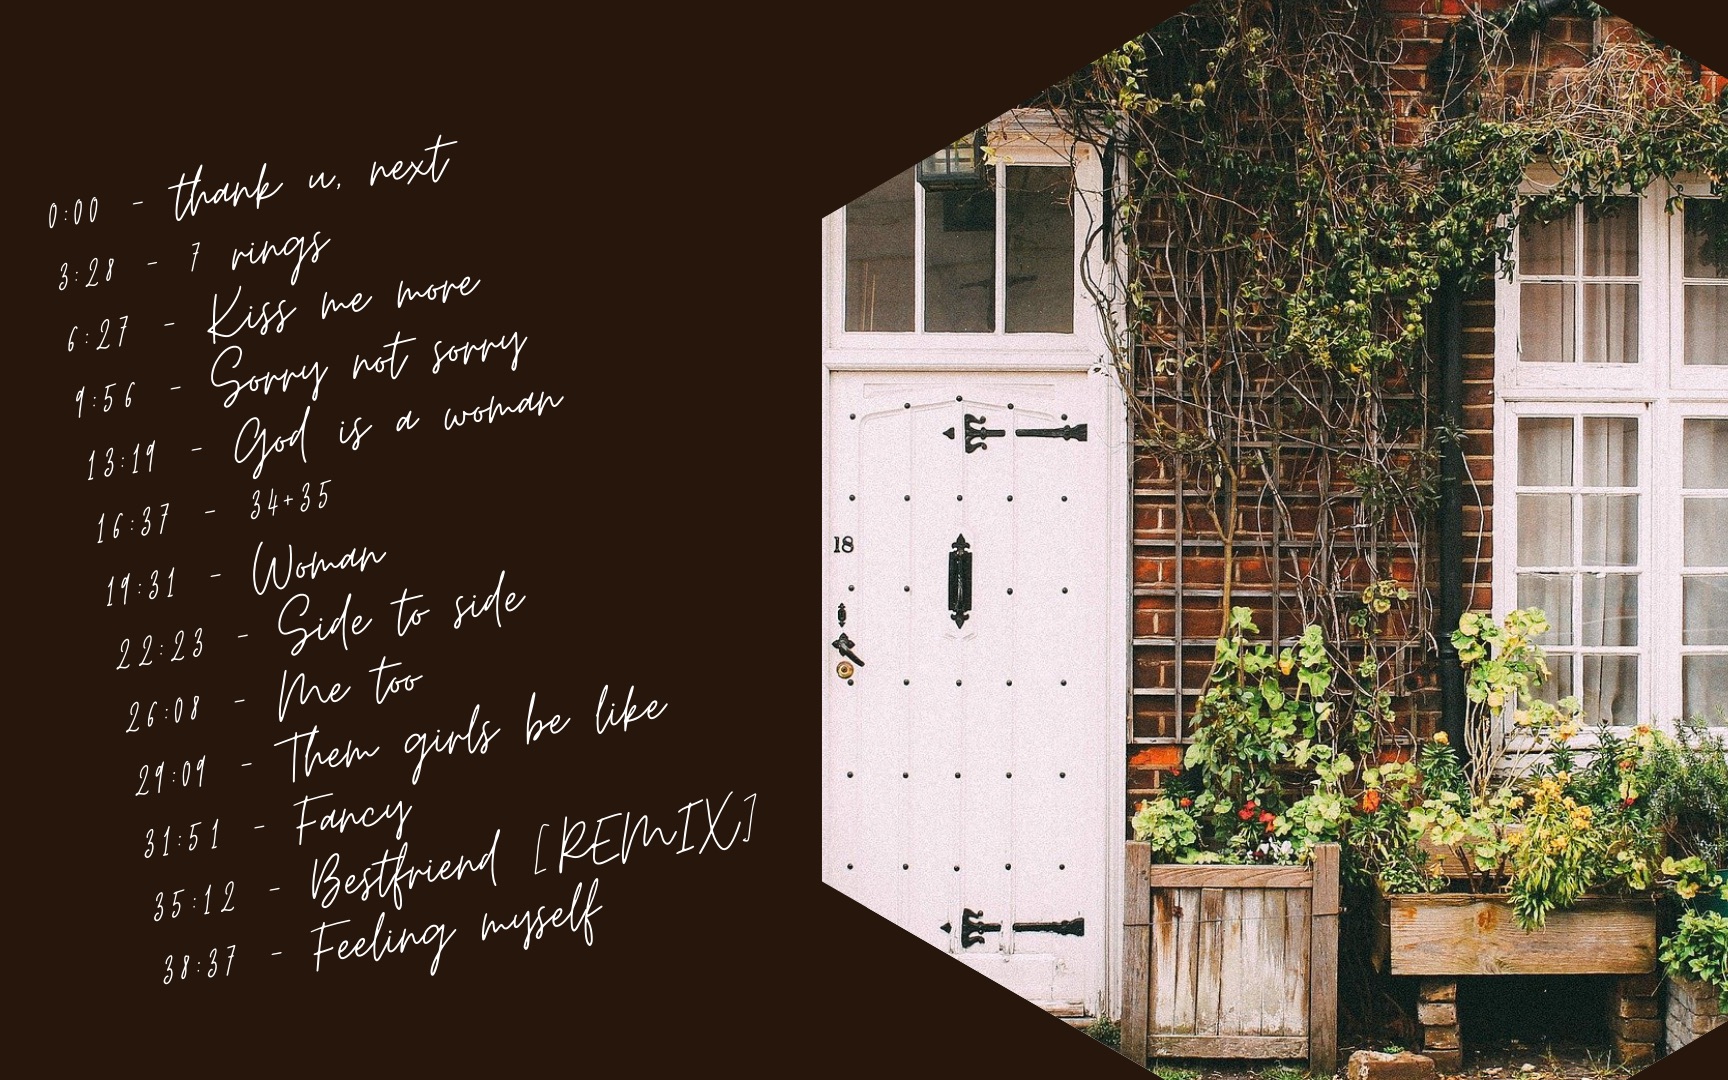 0:00 - thank u, next
3:28 - 7 rings
6:27 - Kiss me more
9:56 - Sorry not sorry
13:19 - God is a woman
16:37 - 34+35
19:31 - Woman
22:23 - Side to side
26:08 - Me too
29:09 - Them girls be like
31:51 - Fancy
35:12 - Bestfriend [REMIX]
38:37 - Feeling myself
18